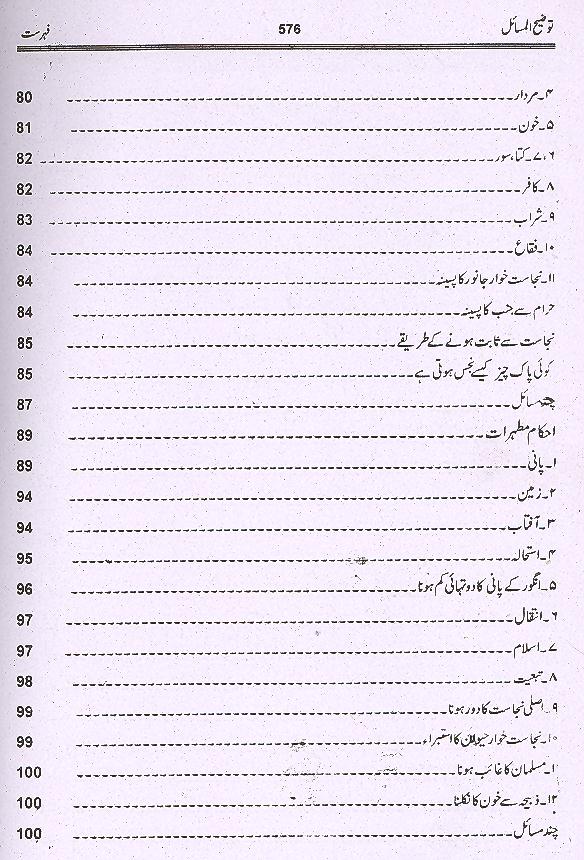 توضیح المسائل 576 فہرست
۴۔مردار 80
۵۔خون 81
۶،۷۔کتا،سور 82
۸۔کافر 82
۹۔شراب 83
۱۰۔فقاع 84
۱۱۔نجاست خوار جانور کا پسینہ 84
حرام سے جنب کا پسینہ 84
نجاست سے ثابت ہونے کے طریقے 85
کوئی پاک چیز کیسے نجس ہوتی ہے 85
چند مسائل 87
احکام مطہرات 89
۱۔پانی 89
۲۔زمین 94
۳۔آفتاب 94
۴۔استحالہ 95
۵۔انگور کے پانی کا دو تہائی کم ہونا 96
۶۔انتقال 97
۷۔اسلام 97
۸۔تبعیت 98
۹۔اصلی نجاست کا دور ہونا 99
۱۰۔نجاست خوار حیوان کا استبراء 99
۱۔مسلمان کا غائب ہونا 100
۱۲۔ذبیحہ سے خون کا نکلنا 100
چند مسائل 100